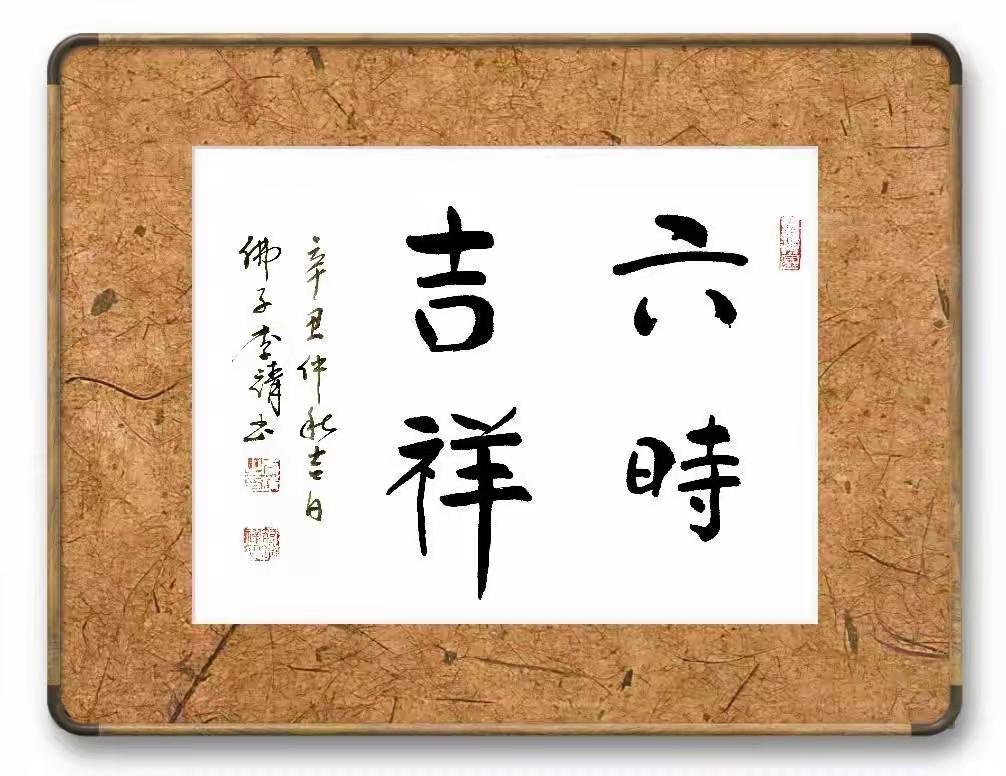 六時
吉祥
辛丑仲秋吉日
佛子李靖书